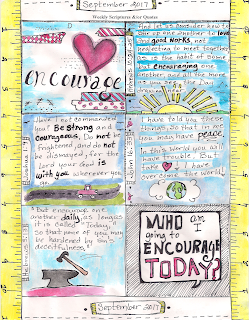 September 2017
Weekly Scriptures &/or Quotes
encourage
And let us consider how to
stir up one another to love
and good works, not
neglecting to meet together,
as is the habit of some,
but encouraging one
another, and all the more
as you see the Day
Have I not commanded
you? Be strong and
courageous. Do not be
frightened, and do not
be dismayed, for the
Lord your God is
with you wherever you
go.
Joshua 1:9
I have told you these
things, so that in me
you may have peace.
In this world you will
have trouble. But
take heart! I have
overcome the world!
John 16:33
But encourage one
another daily, as long as
it is called "Today,"
so that none of you may
be hardened by sin's
deceitfulness.
Hebrews 3:13
WHO am I
going to
ENCOURAGE
TODAY?
September 2017